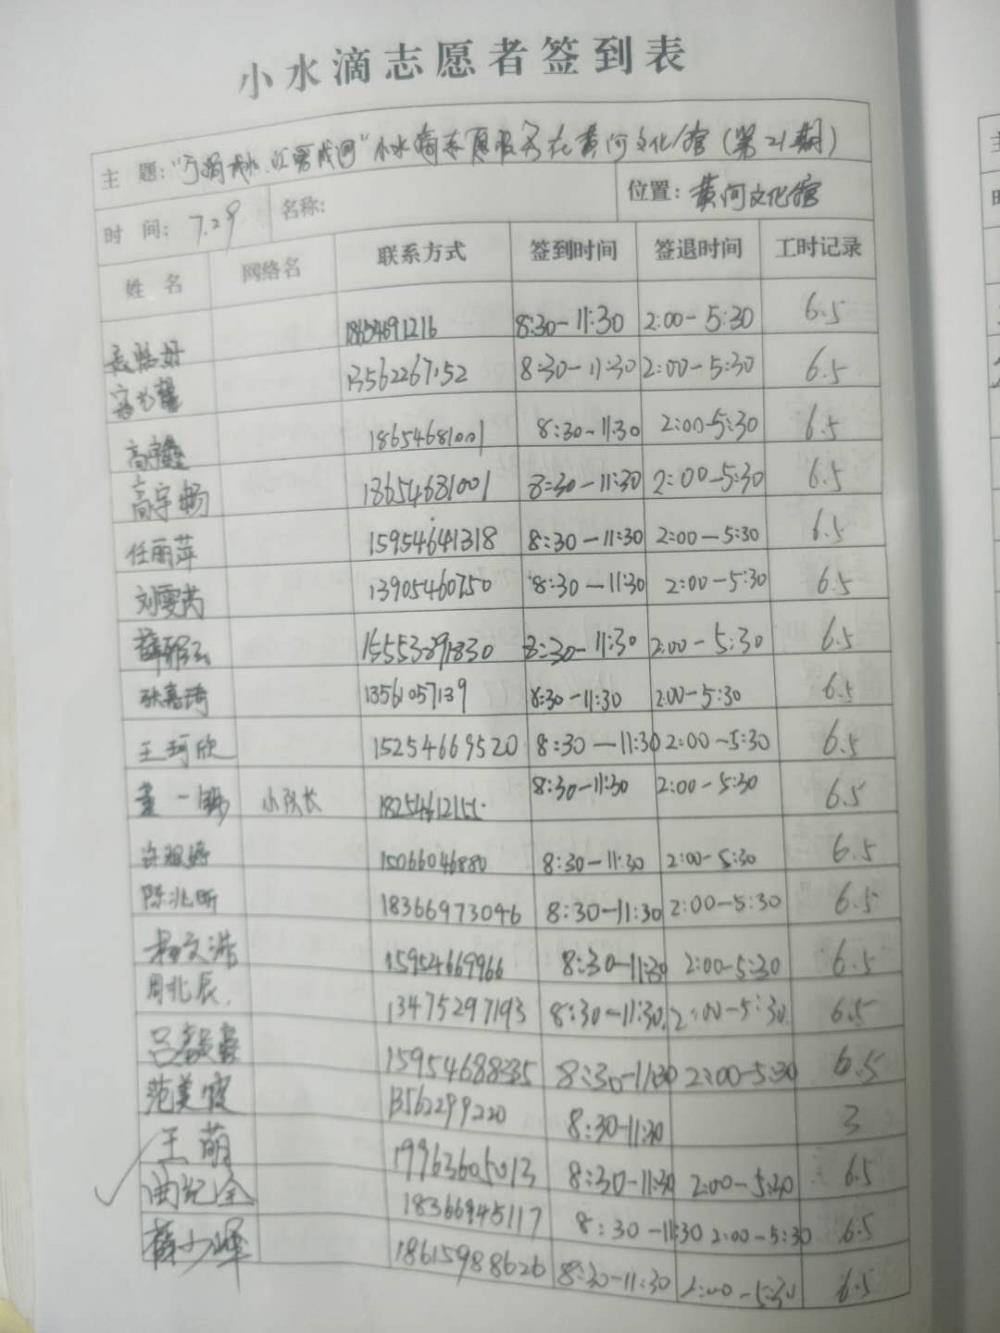 小水滴志愿者签到表
主 题: 小水滴志愿服务在黄河文化馆(第21期)
时 间: 7.29 名称: 位置: 黄河文化馆
姓 名 网络名 联系方式 签到时间 签退时间 工时记录
8:30-11:30 2:00-5:30 6.5
8:30-11:30 2:00-5:30 6.5
高宇鑫 18654681001 8:30-11:30 2:00-5:30 6.5
高宇畅 18654681001 8:30-11:30 2:00-5:30 6.5
任丽萍 15954641318 8:30-11:30 2:00-5:30 6.5
刘雯芮 13905460750 8:30-11:30 2:00-5:30 6.5
8:30-11:30 2:00-5:30 6.5
张嘉琦 13561057139 8:30-11:30 2:00-5:30 6.5
王珂欣 15254669520 8:30-11:30 2:00-5:30 6.5
小队长 8:30-11:30 2:00-5:30 6.5
15066046880 8:30-11:30 2:00-5:30 6.5
陈兆昕 18366973046 8:30-11:30 2:00-5:30 6.5
15954669966 8:30-11:30 2:00-5:30 6.5
周北辰. 13475297193 8:30-11:30. 2:00-5:30. 6.5
8:30-11:30 2:00-5:30 6.5
范美霞 13562299220 8:30-11:30 3
王萌 19963605013 8:30-11:30 2:00-5:30 6.5
曲纪全 18366945117 8:30-11:30 2:00-5:30 6.5
薛少峰 18615988626 8:30-11:30 2:00-5:30 6.5